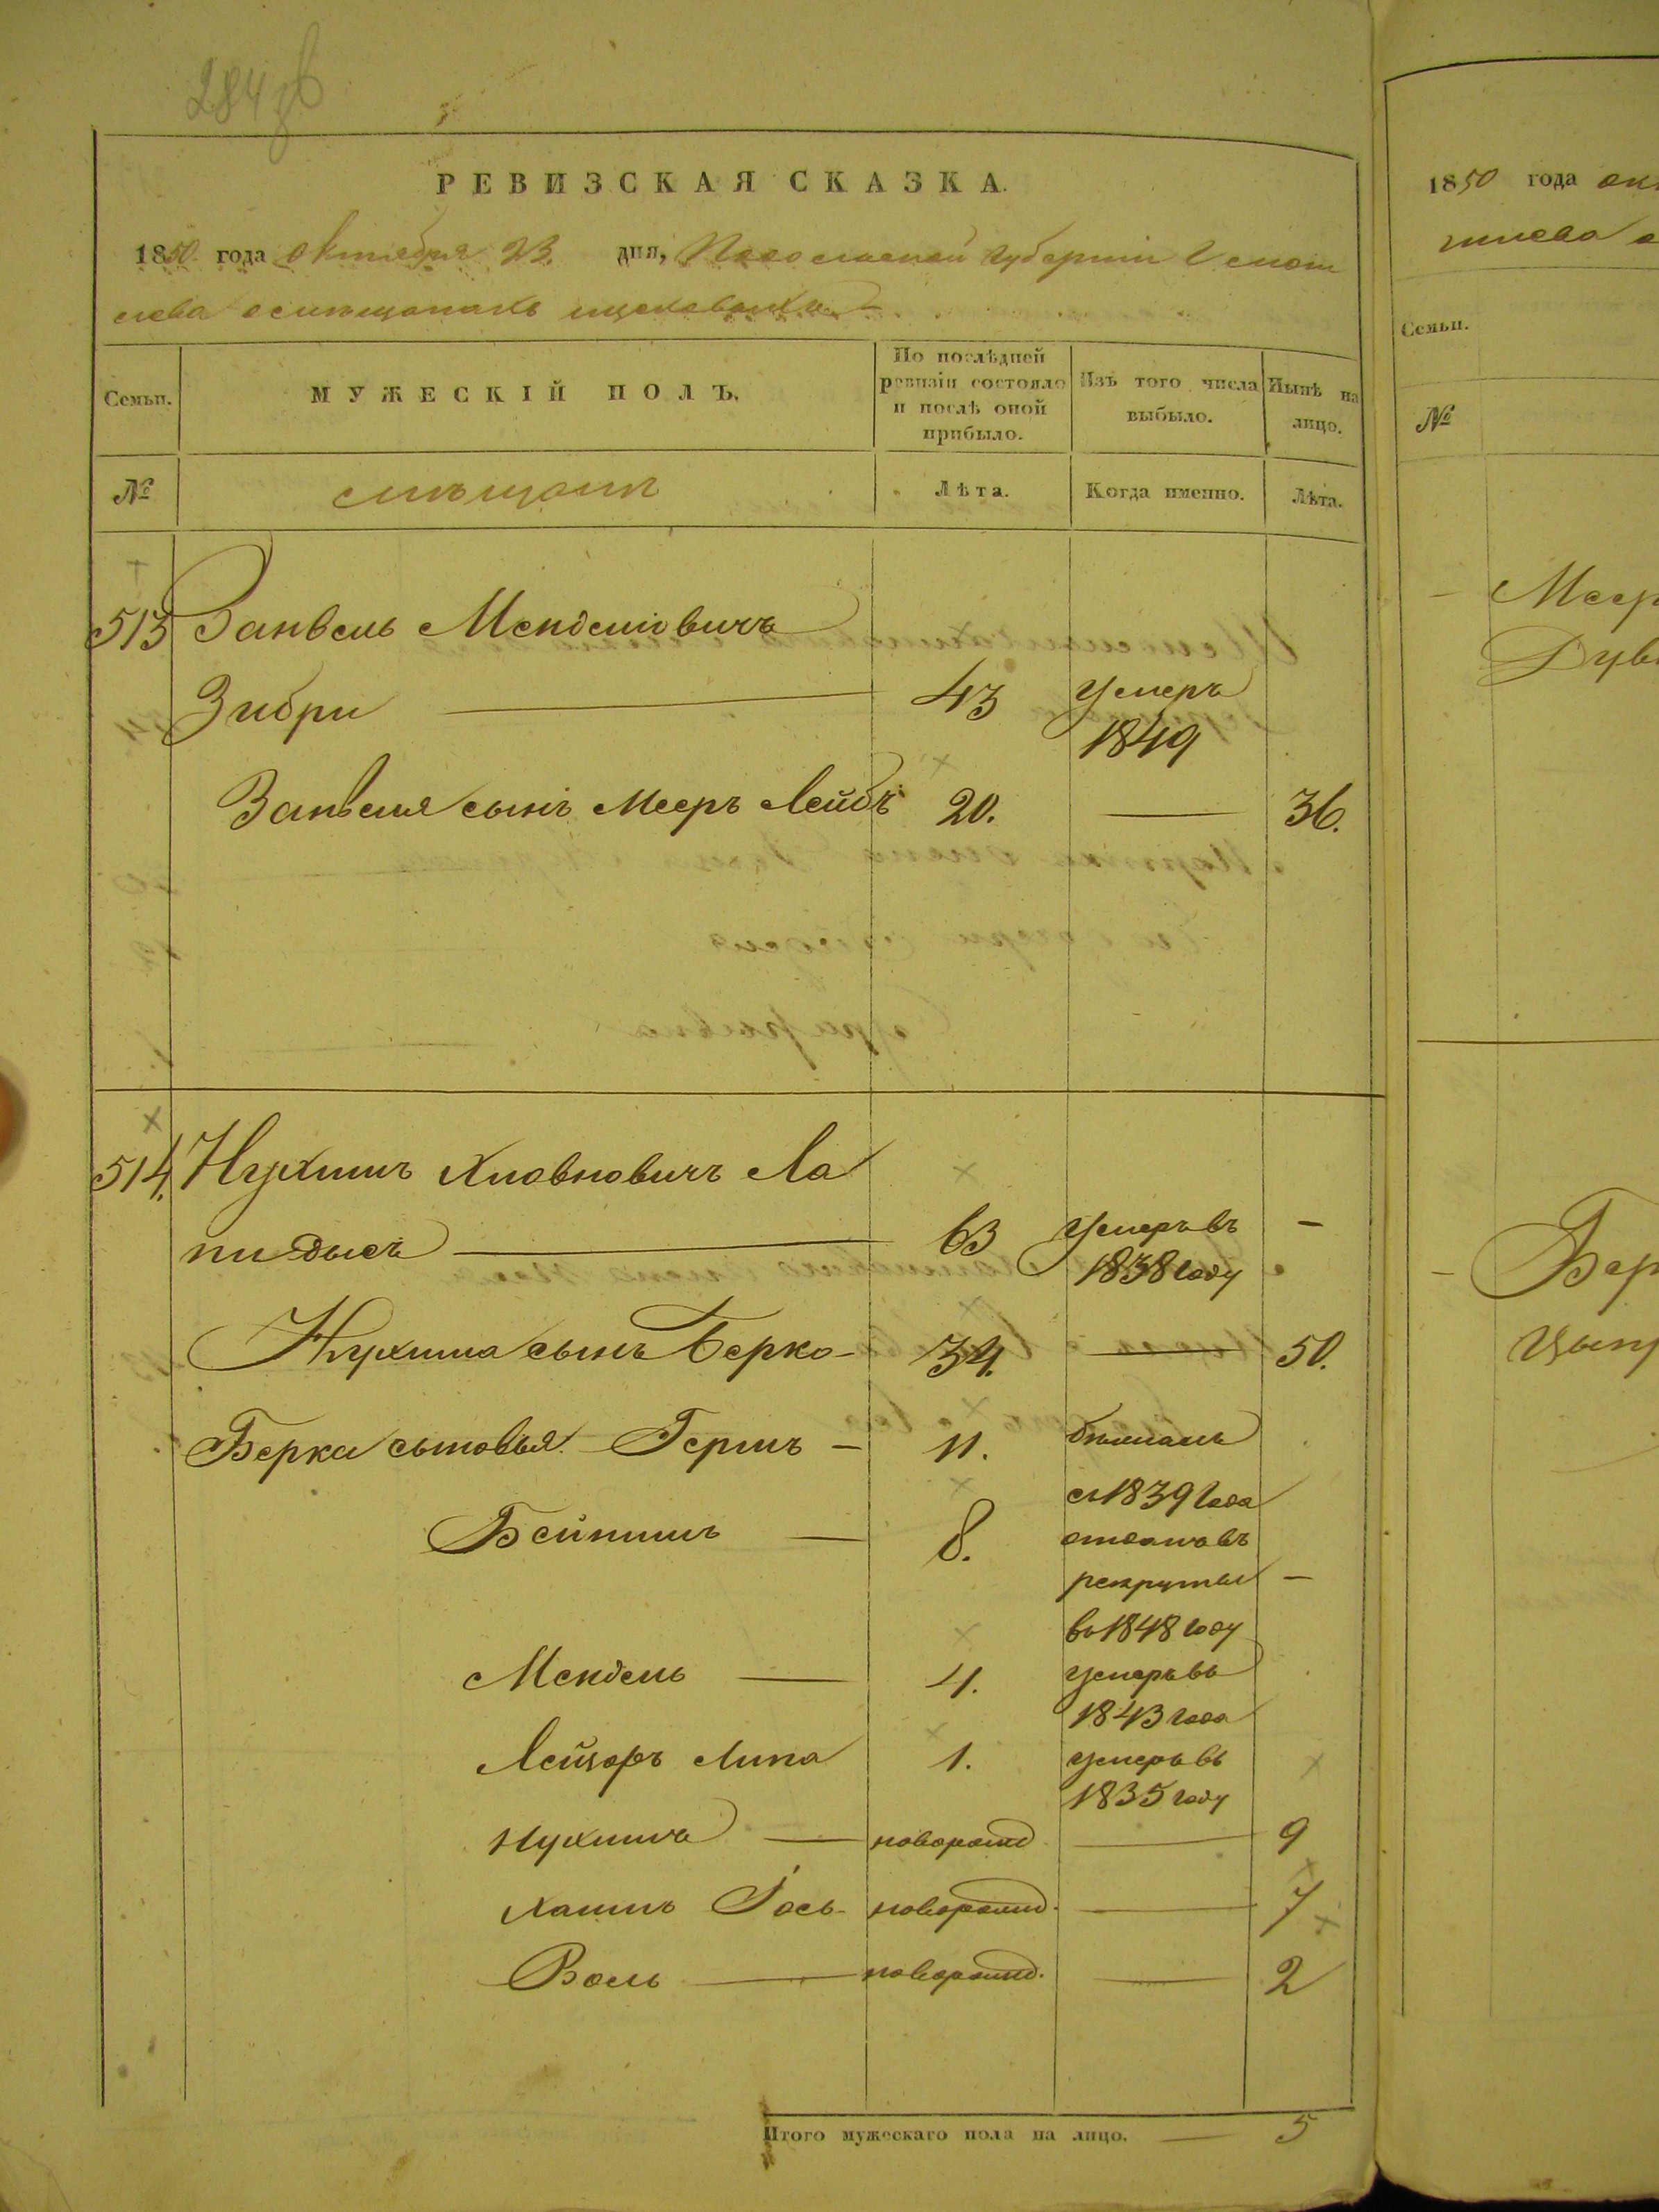 284
РЕВИЗСКАЯ СКАЗКА.
1850 года октября 23. дня, губернии
о мещанахъ
Семьи.
МУЖЕСКІЙ ПОЛЪ.
По послѣдней ревизіи состояло и послѣ оной прибыло.
Изъ того числа выбыло.
Нынѣ на лицо.
№
мещане
Лѣта.
Когда именно.
Лѣта.
513 Занвель Менделіовичъ
Зибри — 43 умеръ 1849
Занвеля сынъ Мееръ Лейбъ 20. — 36.
514. Нухимъ Хловновичъ Ла
пидысъ — 63 умеръ въ 1838 году —
Нухима сынъ Берко — 34. — 50.
Берка сыновья Гершъ — 11. бѣжалъ
съ 1839 года
Бейнишъ — 8. отданъ въ
рекруты —
въ 1848 году
Мендель — 4. умеръ въ
1843 года
Лейзоръ Липа 1. умеръ въ
1835 году
Нухимъ — новорожд — 9
Хаимъ Іось — новорожд. — 7
Воль — новорожд. — 2
Итого мужескаго пола на лицо. — 5
1850 года
Семьи.
№
Меер
Бер